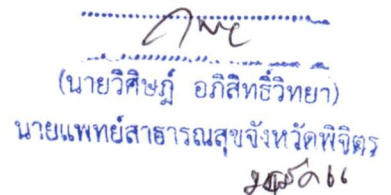 (นายวิศิษฎ์ อภิสิทธิ์วิทยา)
นายแพทย์สาธารณสุขจังหวัดพิจิตร